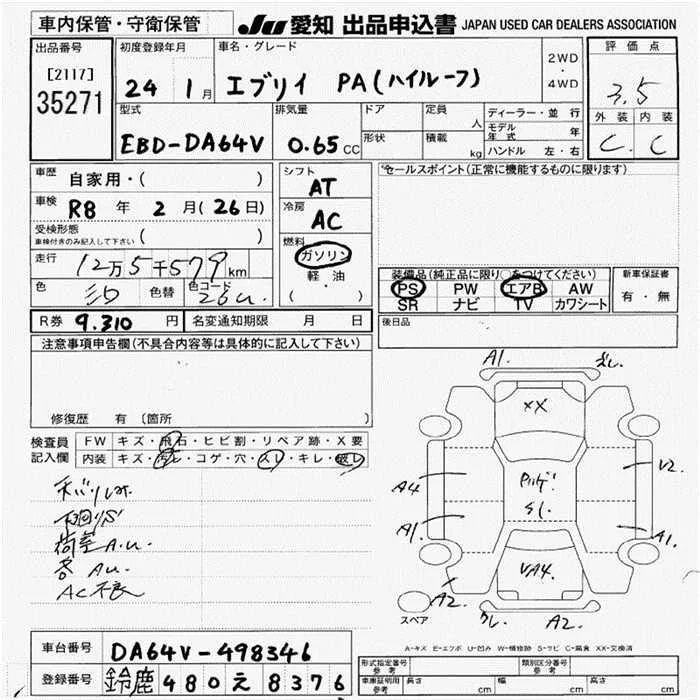 車内保管・守衛保管
JU 愛知 出品申込書 JAPAN USED CAR DEALERS ASSOCIATION
出品番号
[2117]
35271
初度登録年月
24 1月
車名・グレード
エブリイ PA(ハイルーフ)
2WD
・
4WD
評価点
3.5
外装 内装
C C
型式
EBD-DA64V
排気量
0.65 CC
ドア
形状
定員 人
積載 kg
ディーラー・並行
モデル年式 年
ハンドル 左・右
車歴 自家用・( )
車検 R8 年 2 月(26日)
受検形態
車検付きのみ記入して下さい ( )
走行 12万5千579km
色 色替 色コード
26U
シフト
AT
冷房
AC
燃料
ガソリン
軽油
( ・ )
セールスポイント(正常に機能するものに限ります)
装備品(純正品に限り○をつけてください)
PS PW エアB AW
SR ナビ TV カワシート
新車保証書
有・無
R券 9.310 円 名変通知期限 月 日
後日品
注意事項申告欄(不具合内容等は具体的に記入して下さい)
修復歴 有 〔箇所 〕
検査員記入欄
FW キズ・飛石・ヒビ割・リペア跡・X要
内装 キズ・汚レ・コゲ・穴・スレ・キレ・破レ
下回りS
荷室A.U.
各AU.
AC不良
A1.
XX
A4
A1.
V2.
A1.
VA4.
A2
A2.
スペア
A-キズ E-エクボ U-凹み W-補修跡 S-サビ C-腐食 XX-交換済
車台番号 DA64V-498346
登録番号 鈴鹿 480 え 8376
形式指定番号
参考
類別区分番号
参考
車庫証明用
参考
長さ cm
幅 cm
高さ cm